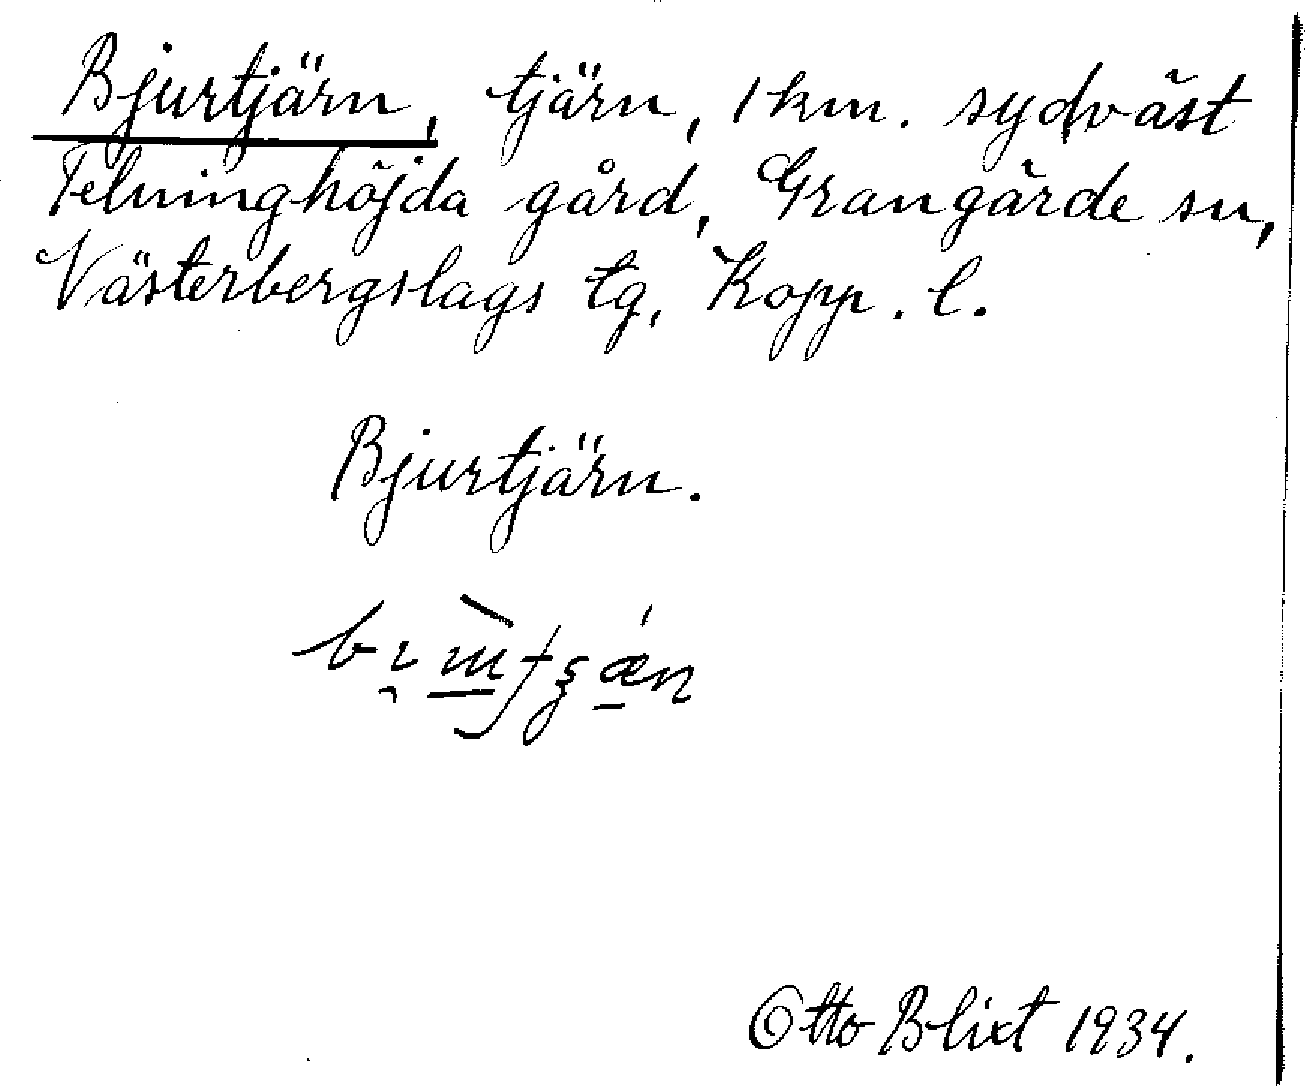 Bjurtjärn, tjärn, 1 km. sydväst
Felninghöjda gård, Grangärde sn,
Västerbergslags tg, Kopp. l.
Bjurtjärn.
Otto Blixt 1934.